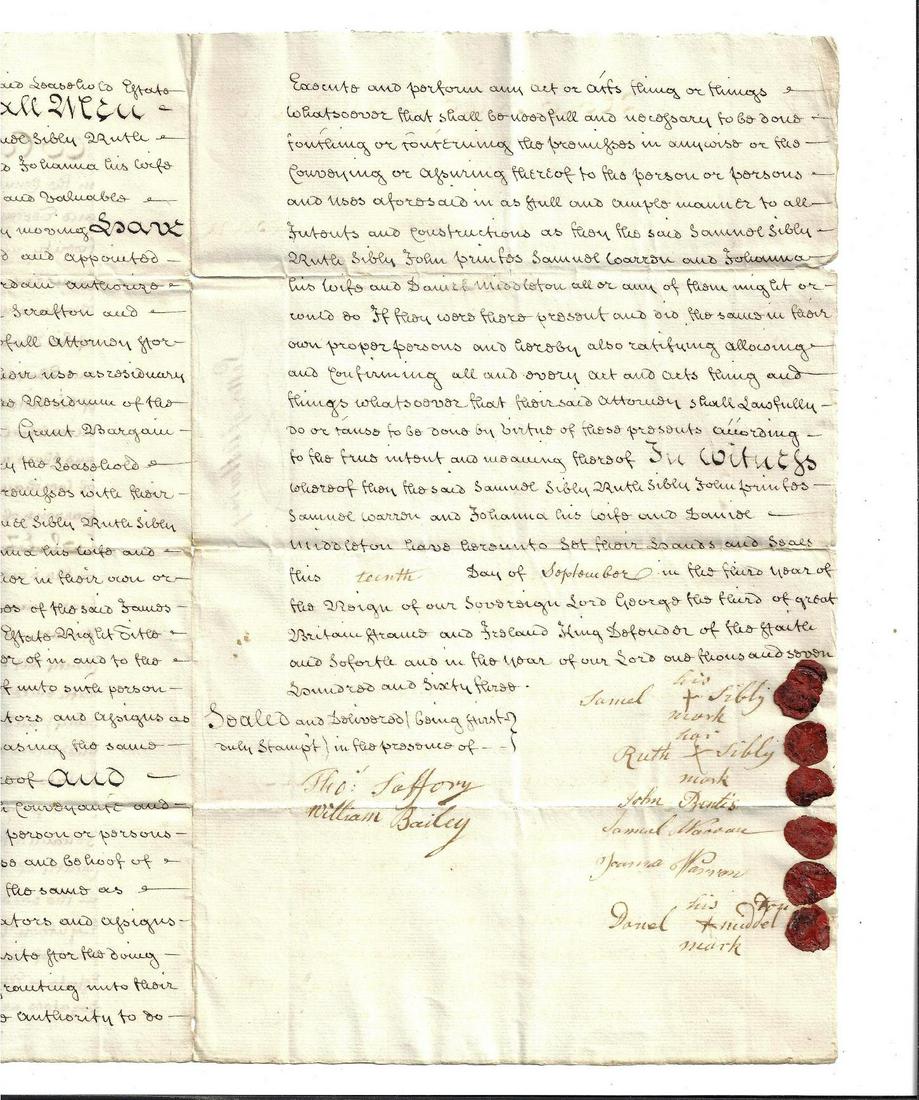 aid Leasehold Estate
all Men
uel Sibly Ruth
d Johanna his Wife
and valuable
y moving Have
d and appointed
rdain authorize
Scrafton and
full Attorney ffor
eir use as residuary
Residuum of the
Grant Bargain
y the Leasehold
remisses with their
uel Sibly Ruth Sibly
nna his Wife and
er in their own or
es of the said James
Estate Right Title
er of in and to the
f unto such person
tors and assigns as
asing the same
eof And
Conveyance and
person or persons
se and behoof of
the same as
ators and assigns
site ffor the doing
ranting unto their
authority to do
Execute and perform any act or acts thing or things
whatsoever that shall be needfull and necessary to be done
touching or concerning the premisses in anywise or the
Conveying or assuring thereof to the person or persons
and uses aforesaid in as ffull and ample manner to all
Intents and Constructions as they the said Samuel Sibly
Ruth Sibly John printes Samuel Warren and Johanna
his Wife and Daniel Middleton all or any of them might or
could do If they were there present and did the same in their
own proper persons and hereby also ratifying allowing
and Confirming all and every act and acts thing and
things whatsoever that their said Attorney shall Lawfully
do or cause to be done by virtue of these presents according
to the true intent and meaning thereof In Witness
whereof they the said Samuel Sibly Ruth Sibly John printes
Samuel Warren and Johanna his Wife and Daniel
Middleton have hereunto Set their Hands and Seals
this tenth Day of September in the third year of
the Reign of our Sovereign Lord George the third of great
Britain ffrance and Ireland King Defender of the ffaith
and Soforth and in the year of our Lord one thousand seven
Hundred and Sixty three .
Sealed and Delivered (being ffirst
duly Stampt) in the presence of
Tho.s Saffory
William Bailey
his
Samel + Sibly
mark
her
Ruth + Sibly
mark
John Printis
Samuel Warran
Joanna Warren
his Ton
Danel + middel
mark